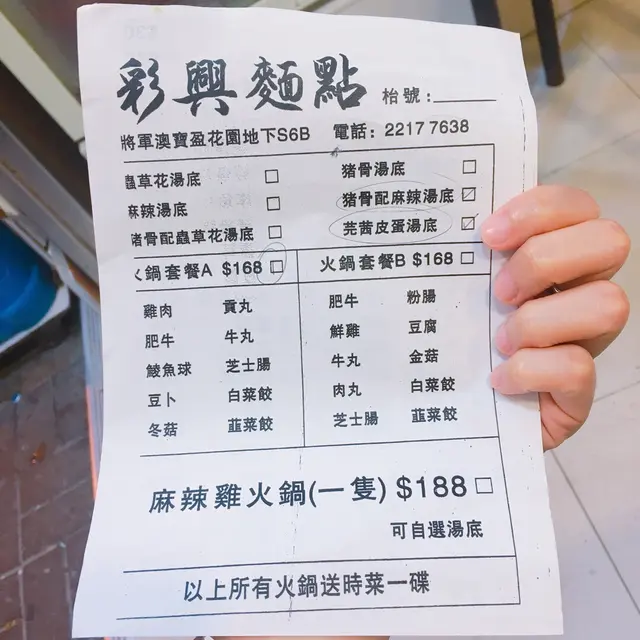 彩興麵點 枱號:
將軍澳寶盈花園地下S6B 電話: 2217 7638
蟲草花湯底 猪骨湯底
麻辣湯底 猪骨配麻辣湯底
猪骨配蟲草花湯底 芫茜皮蛋湯底
火鍋套餐A $168 火鍋套餐B $168
雞肉 貢丸 肥牛 粉腸
肥牛 牛丸 鮮雞 豆腐
鯪魚球 芝士腸 牛丸 金菇
豆卜 白菜餃 肉丸 白菜餃
冬菇 韮菜餃 芝士腸 韮菜餃
麻辣雞火鍋(一隻) $188
可自選湯底
以上所有火鍋送時菜一碟